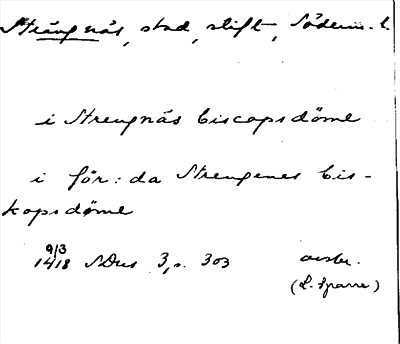 Strängnäs, stad, stift, Söderm. l.
i Strengnäs biscopsdöme
i för: da Strengenes bis-
kopsdøme
9/3
1418 SDns 3, s. 303 avskr.
(L. Sparre)